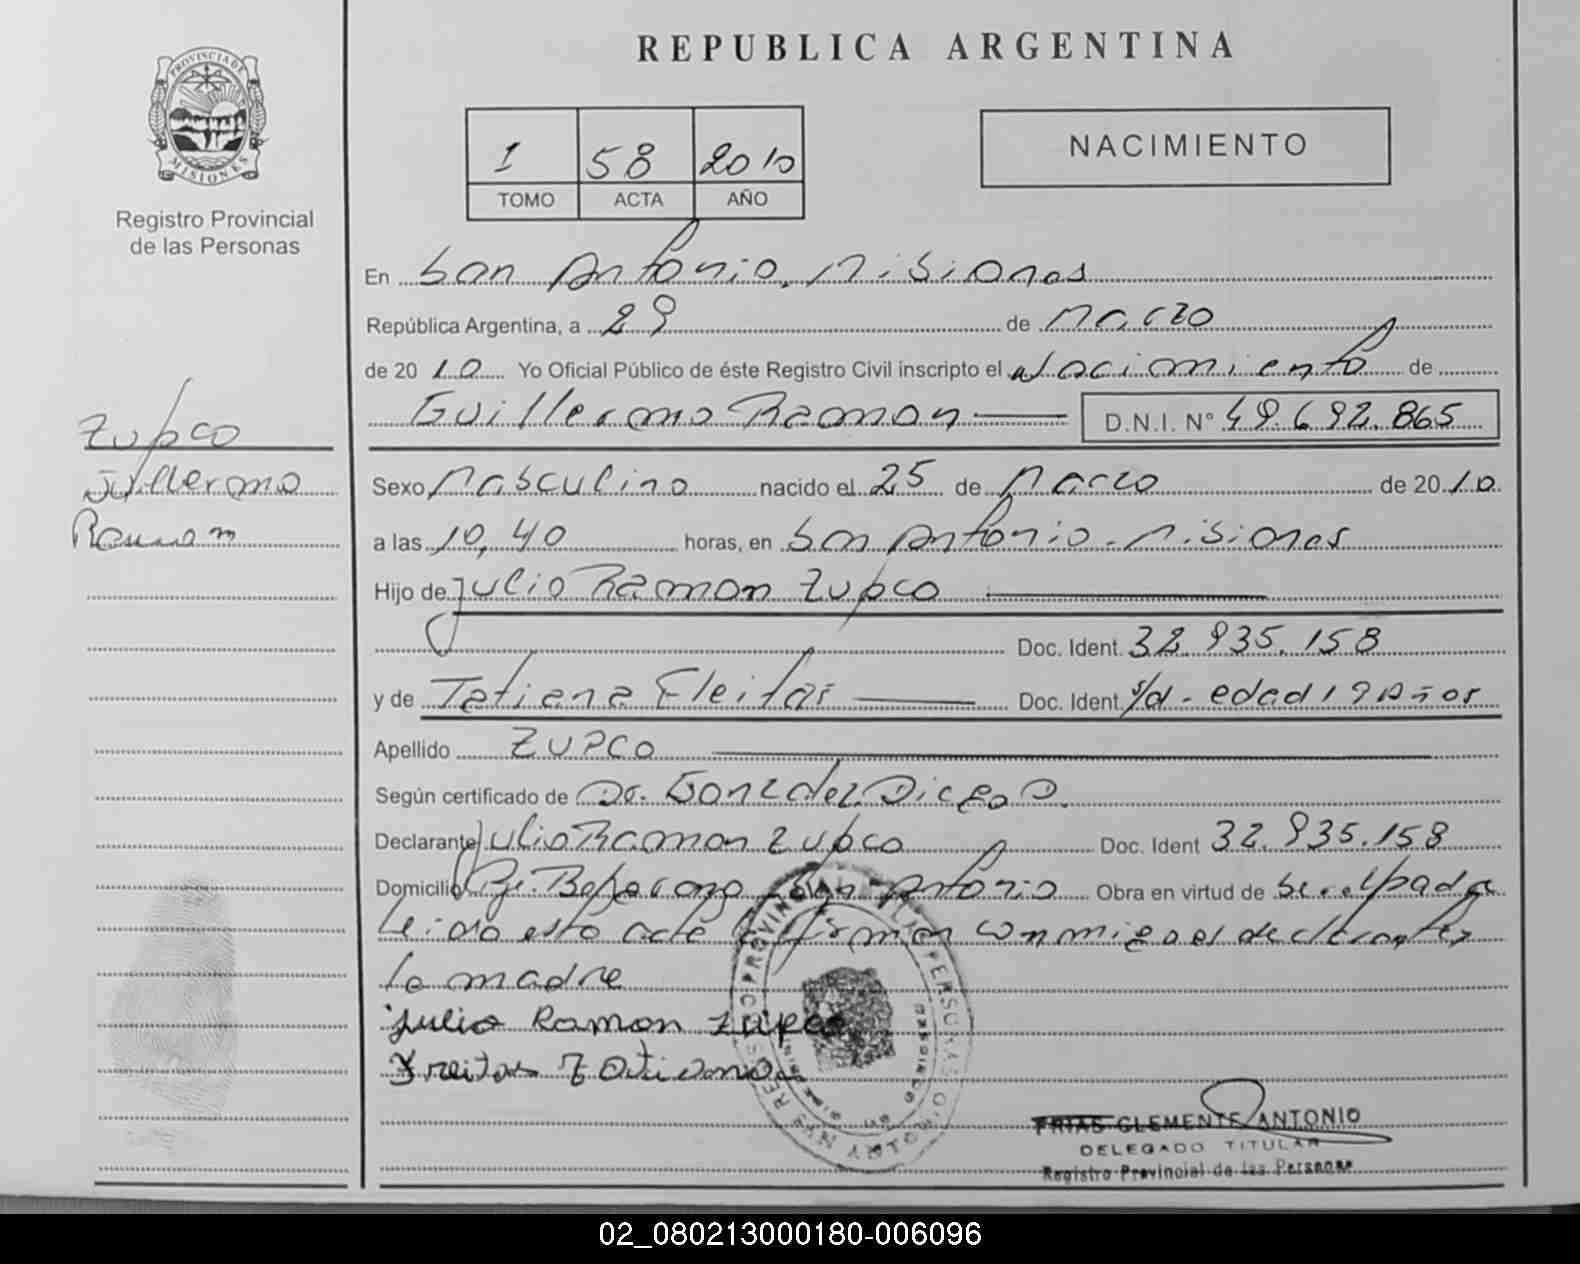 REPUBLICA ARGENTINA
PROVINCIA DE
MISIONES
Registro Provincial
de las Personas
1 58 2010
TOMO ACTA AÑO
NACIMIENTO
En San Antonio, Misiones
República Argentina, a 29 de Marzo
de 2010 Yo Oficial Público de éste Registro Civil inscripto el Nacimiento de
Guillermo Ramon D.N.I. N° 49.692.865
Zupco
Guillermo
Ramon
Sexo Masculino nacido el 25 de Marzo de 2010
a las 10,40 horas, en San Antonio - Misiones
Hijo de Julio Ramon Zupco
Doc. Ident. 32.935.158
y de Tatiana Fleitas Doc. Ident. s/d - edad 19 años
Apellido ZUPCO
Según certificado de Dr. Gonzalez Diego D.
Declarante Julio Ramon Zupco Doc. Ident 32.935.158
Domicilio San Antonio Obra en virtud de
Leido esto acta firman conmigo el declarante y
la madre
Julio Ramon Zupco
Freitas Tatiana
FRIAS CLEMENTE ANTONIO
DELEGADO TITULAR
Registro Provincial de las Personas
02_080213000180-006096